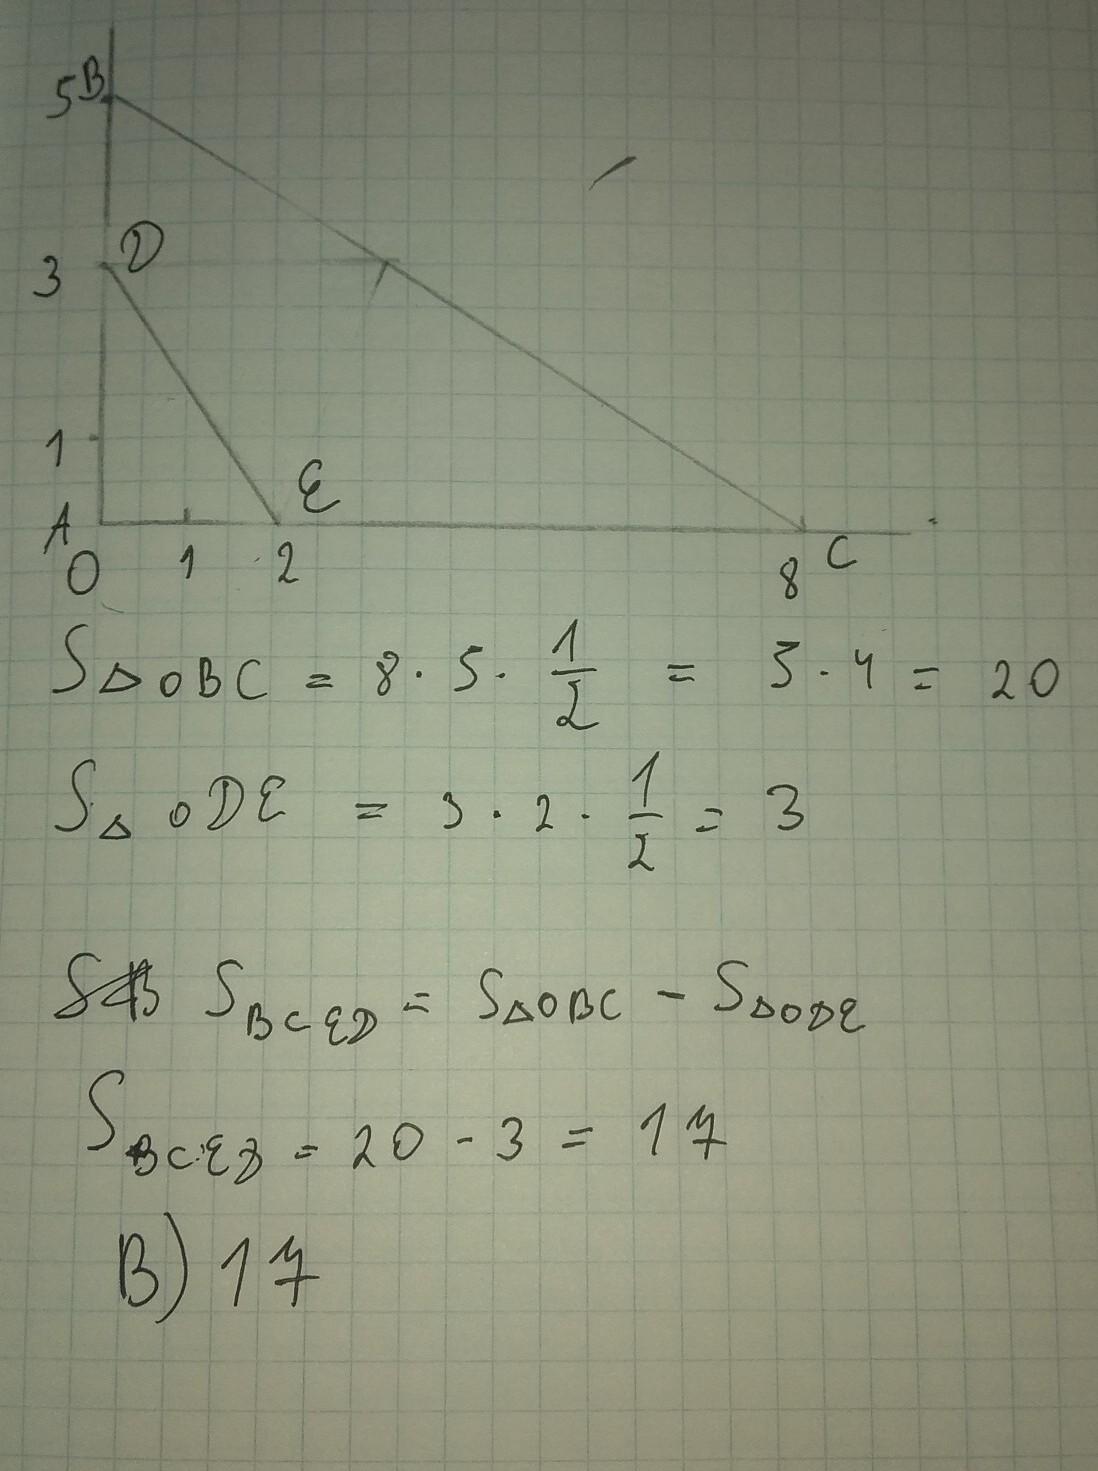 5 B
3 D
1
A E
0 1 2 8 C
S△OBC = 8 · 5 · 1/2 = 5 · 4 = 20
S△ODE = 3 · 2 · 1/2 = 3
S_BCED = S△OBC - S△ODE
S_BCED = 20 - 3 = 17
B) 17